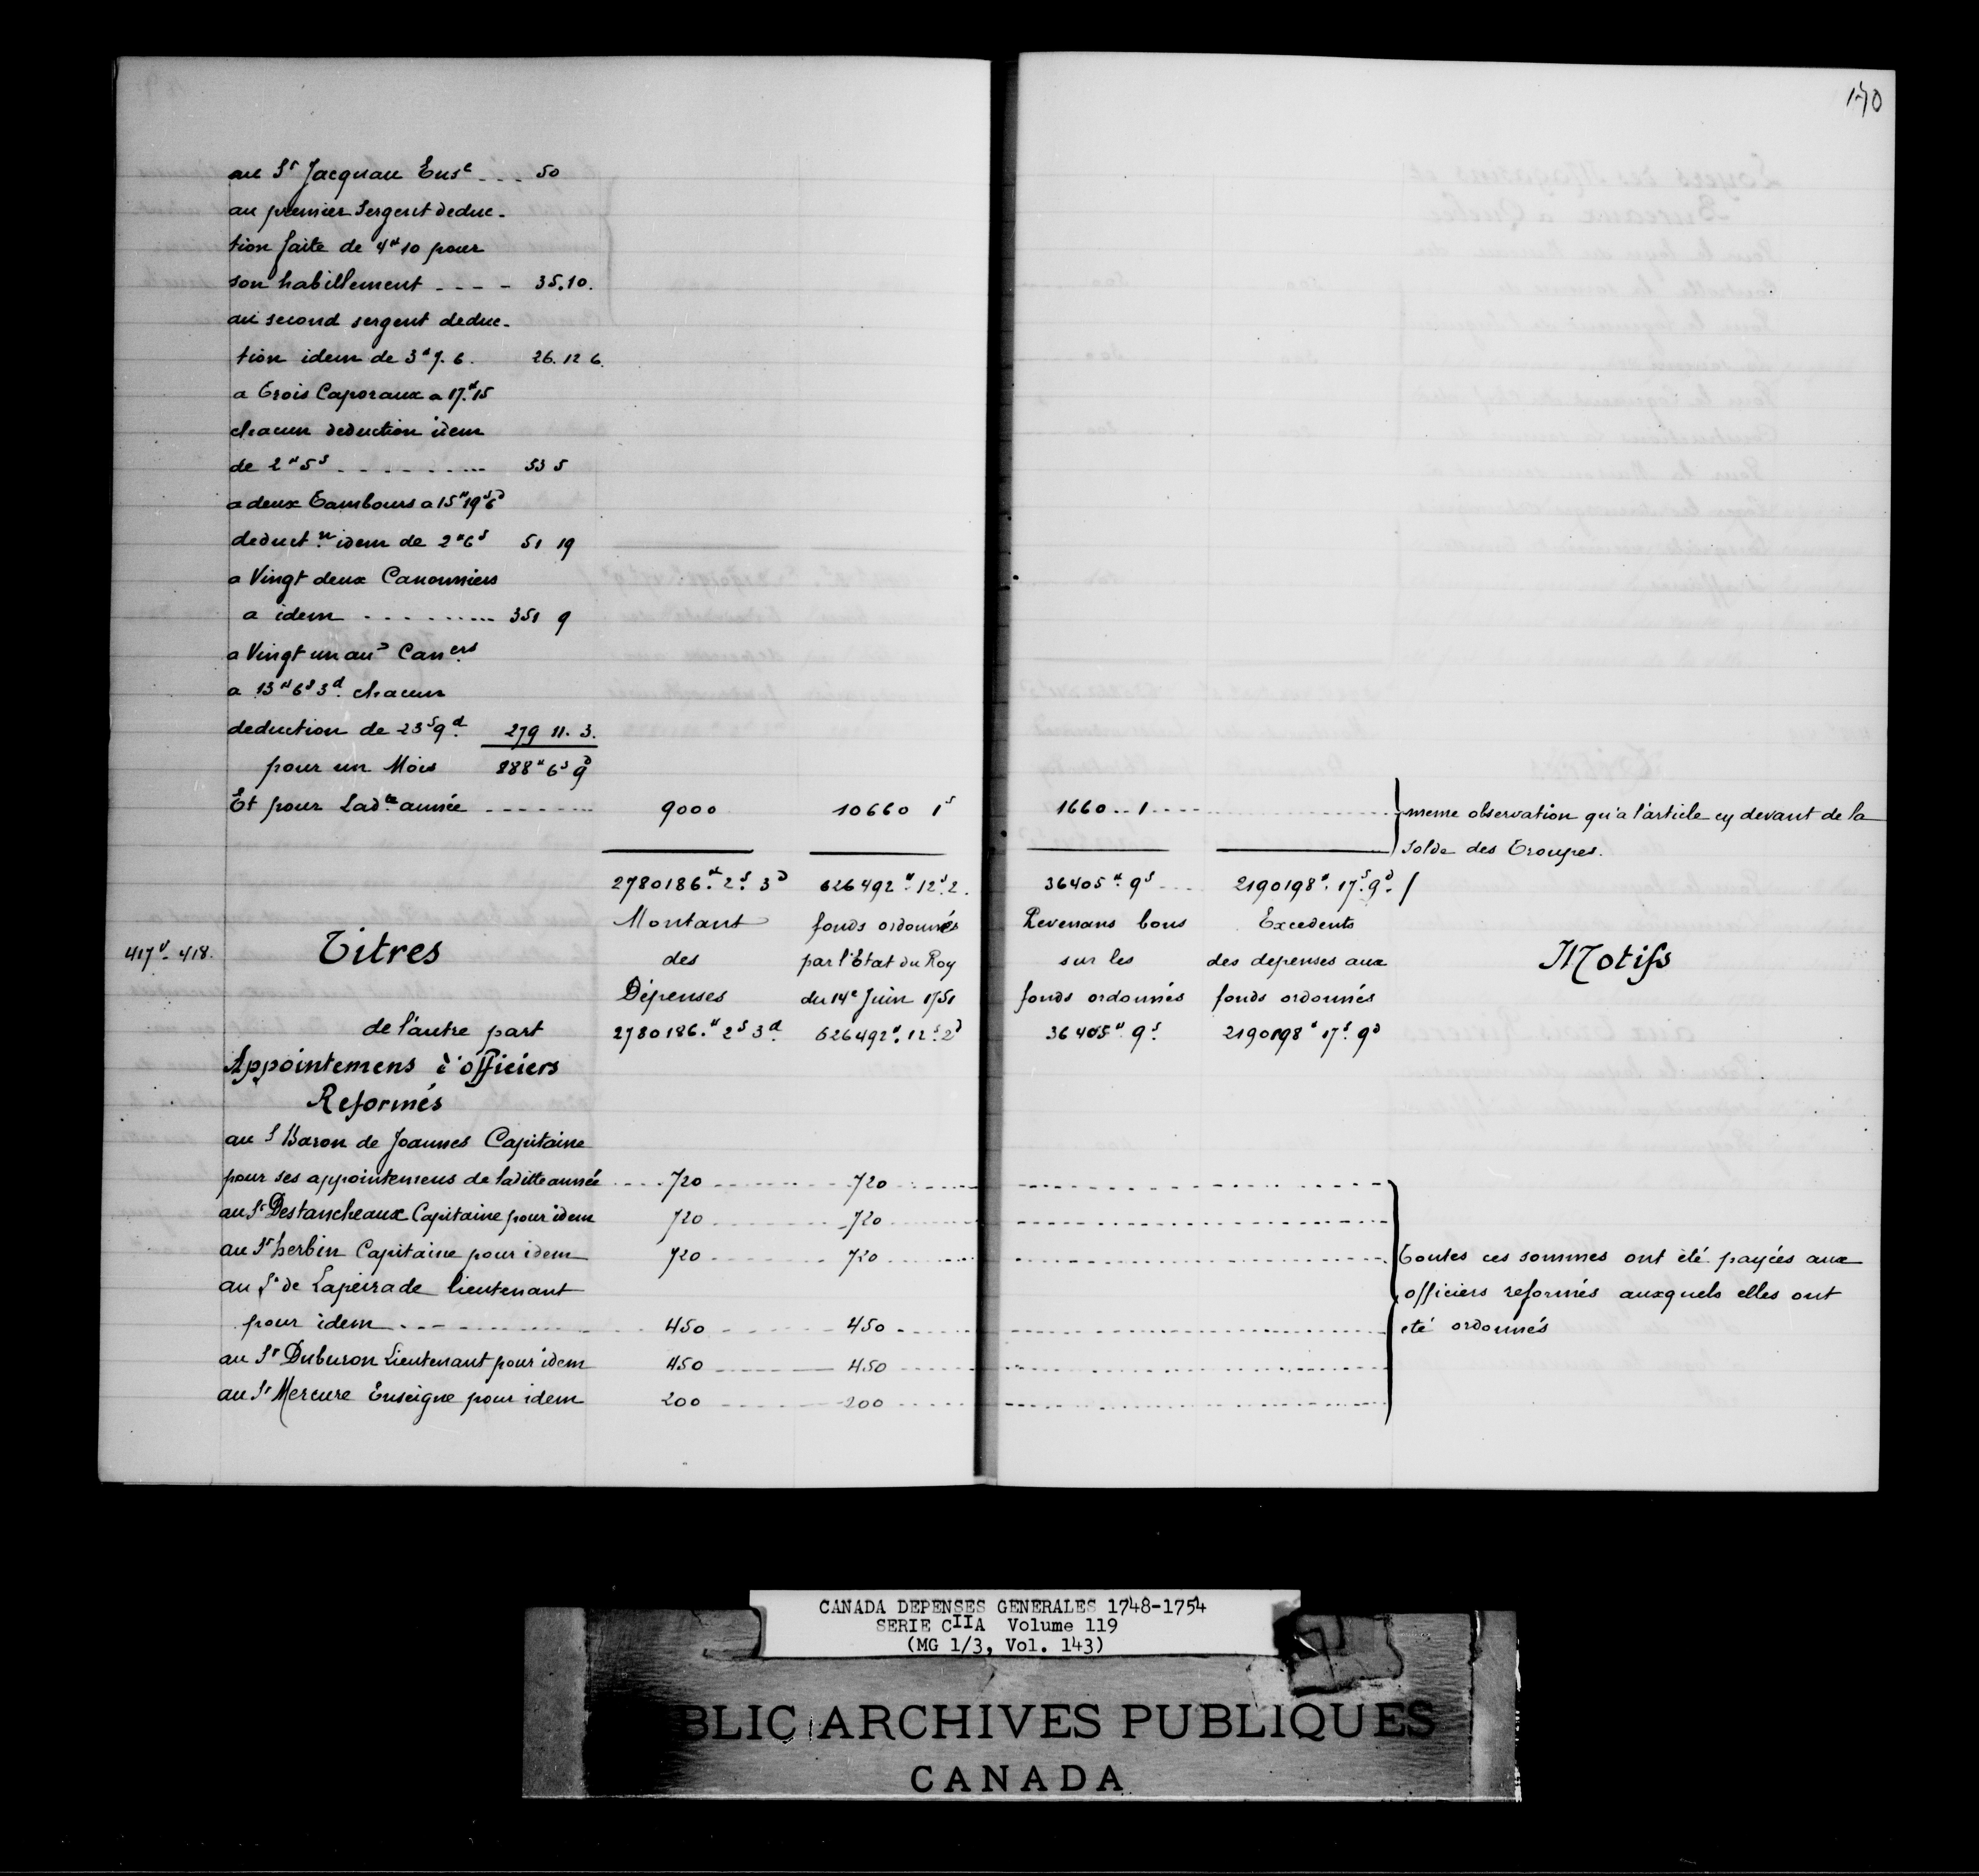 170
au Sr Jacquau Ense - - - 50
au premier Sergent deduc-
tion faite de 4# 10 pour
son habillement - - - - 35.10.
au second sergent deduc-
tion idem de 3# 7. 6. 26. 12 6.
a trois Caporaux a 17.# 15
chacun deduction idem
de 2# 5s - - - - - - 53 5
a deux Tambours a 15# 19s 6d
deduct.n idem de 2# 6s 51 19
a Vingt deux Canonniers
a idem - - - - - - 351 9
a Vingt un aud Caners
a 13# 6s 3d. chacun
deduction de 23s 9d. 279 11. 3.
pour un Mois 888# 6s 9d
Et pour Ladte année - - - - - - 9000 10660 1s 1660 .. 1 - - - - meme observation qu'a l'article cy devant de la
Solde des Troupes.
2780186.# 2s. 3d 626492# 12s. 2. 36405# 9s - - - 2190198#. 17s. 9d. /
417v - 418. Titres Montant des Dépenses fonds ordonnés par l'Etat du Roy du 14e Juin 1751 Revenans bons sur les fonds ordonnés Excedents des depenses aux fonds ordonnés Motifs
de l'autre part 2780186.# 2s 3d. 626492#. 12s. 2d 36405# 9s. 2190198# 17s. 9d
Appointemens d'officiers
Reformés
au S Baron de Joannes Capitaine
pour ses appointemens de laditte année - - - - 720 - - - - 720 - - - -
au Sr Destancheaux Capitaine pour idem 720 - - - - 720 - - - -
au Sr herbin Capitaine pour idem 720 - - - - 720 - - - - Toutes ces sommes ont été payées aux
au Sr de Lapeirade lieutenant officiers reformés auxquels elles ont
pour idem - - - - 450 - - - - 450 - - - - eté ordonnés
au Sr Duburon Lieutenant pour idem 450 - - - - 450 - - - -
au Sr Mercure Enseigne pour idem 200 - - - - 200 - - - -
CANADA DEPENSES GENERALES 1748-1754
SERIE CIIA Volume 119
(MG 1/3, Vol. 143)
BLIC ARCHIVES PUBLIQUES
CANADA